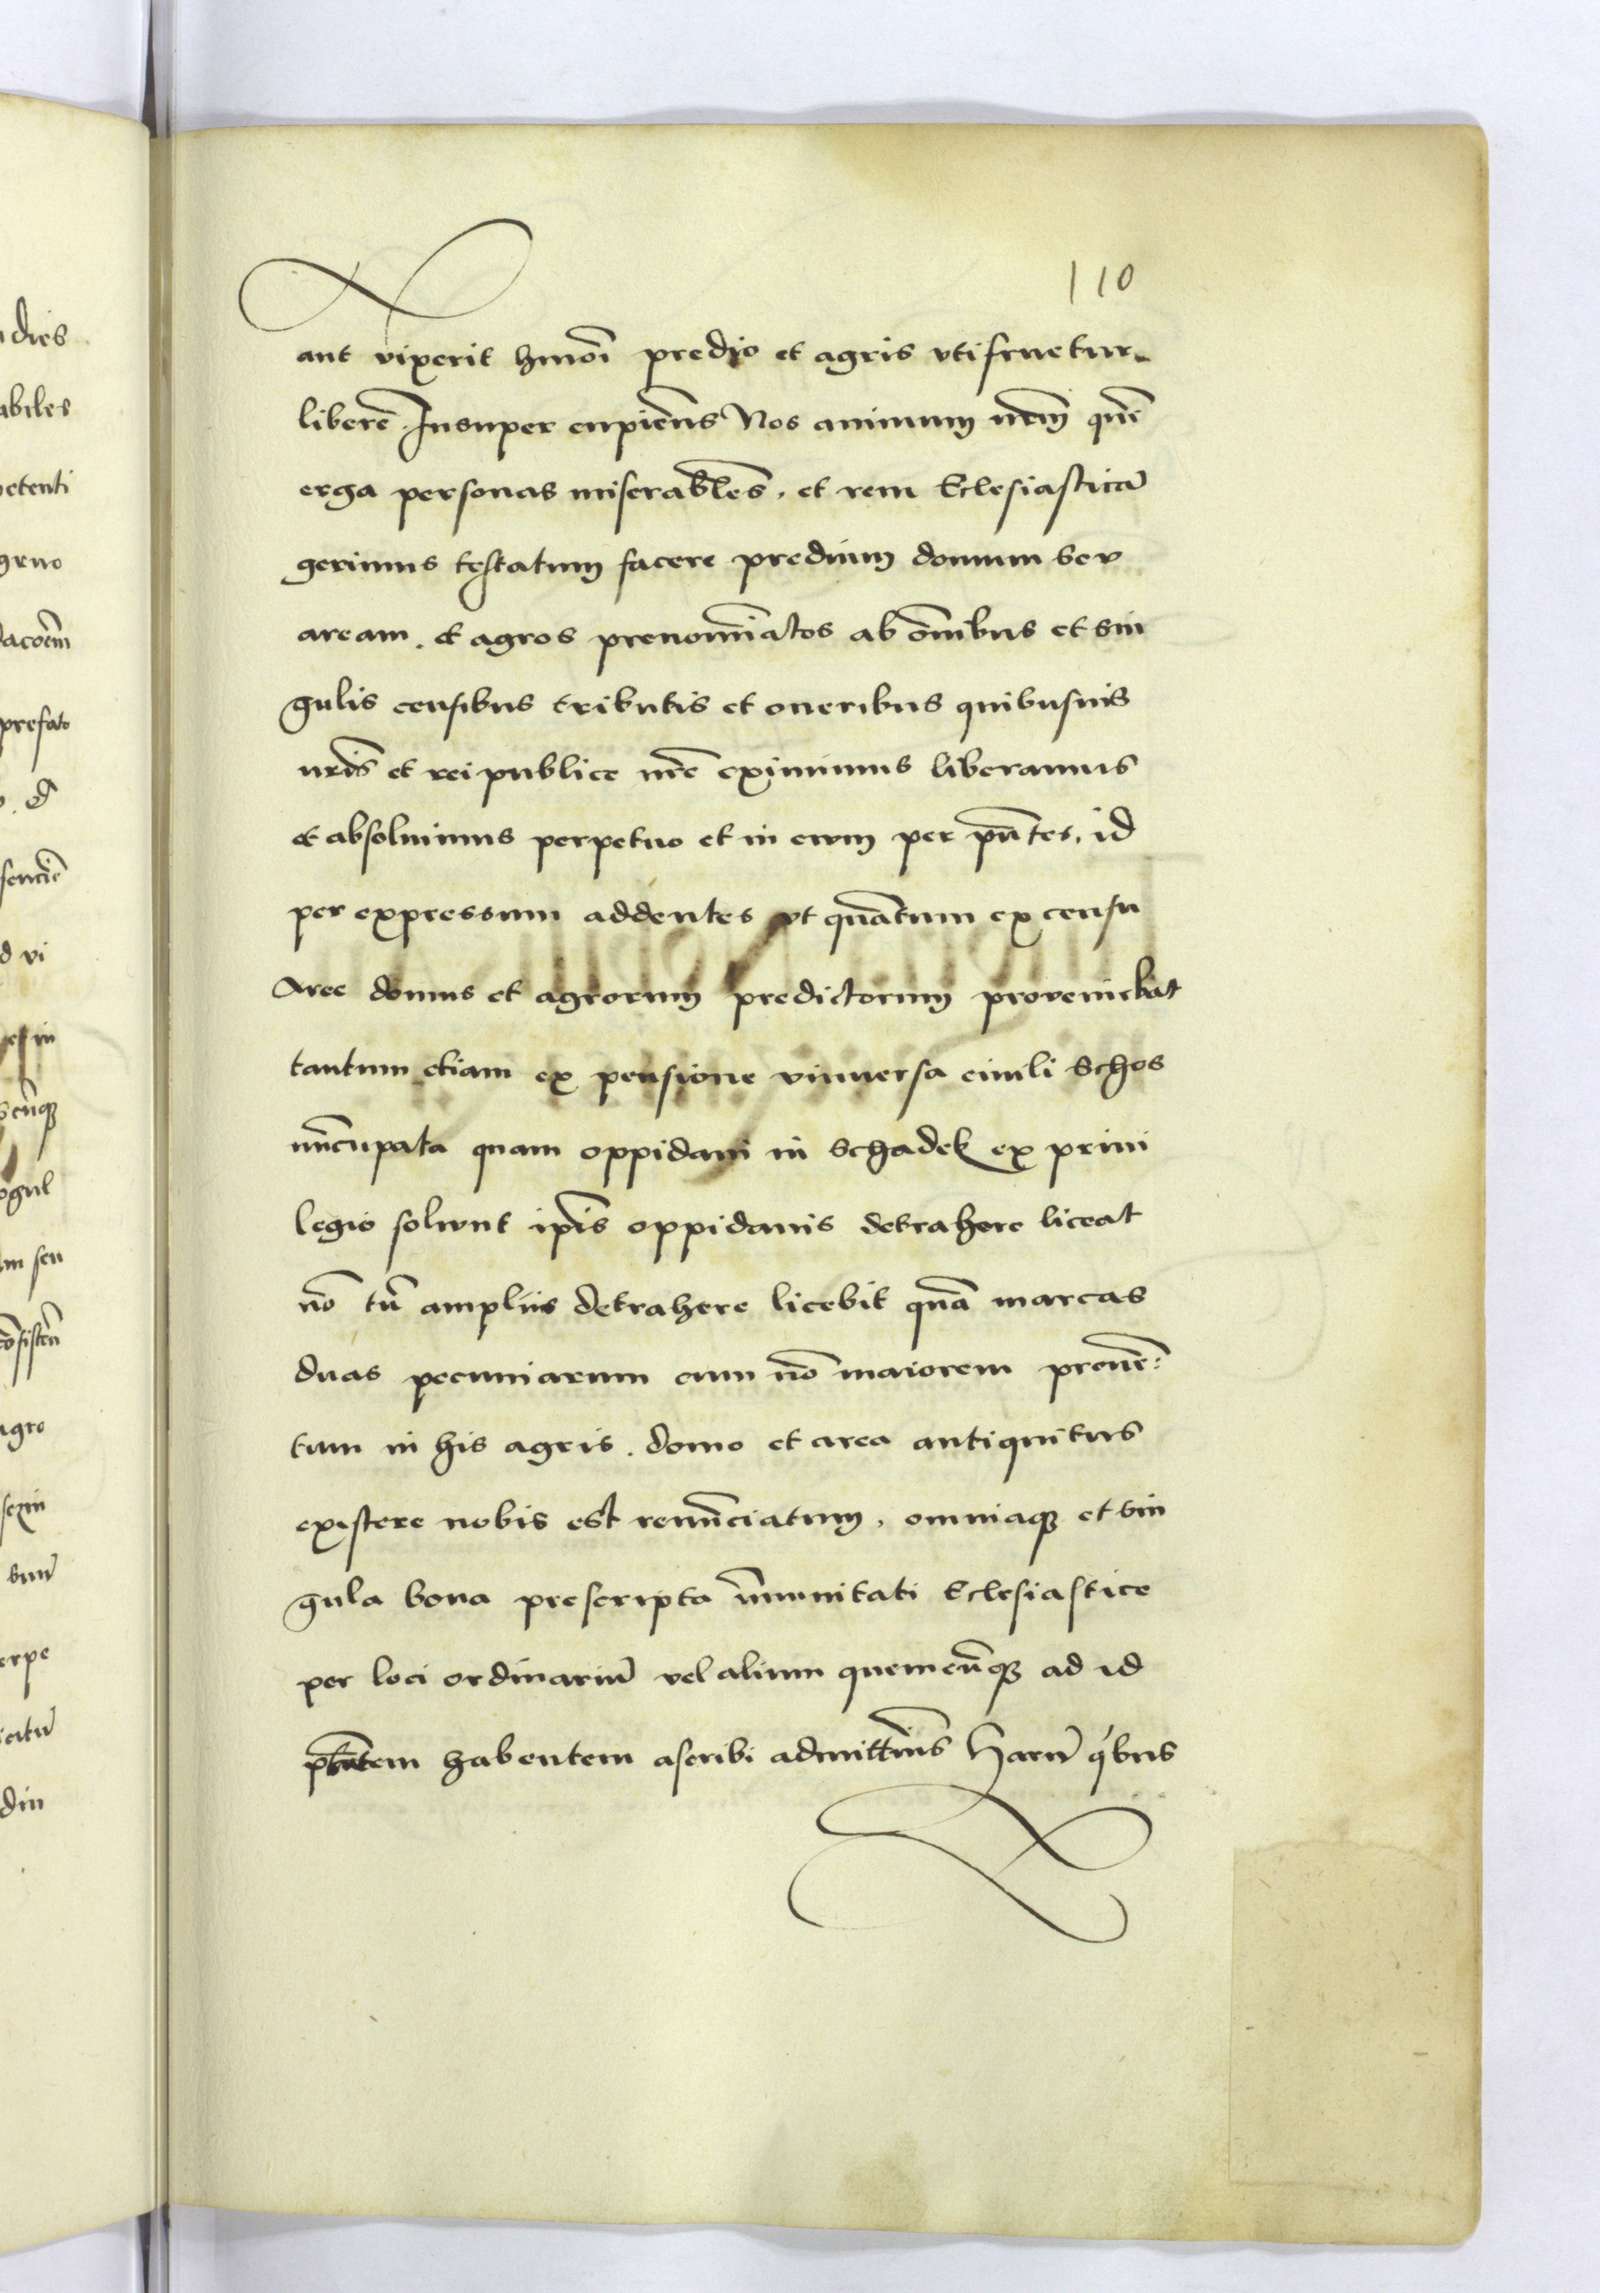 110
aut vixerit hmoi predio et agris vtifruetur
libere. Insuper cupiens Nos animum nrm quē
erga personas miserabiles, et rem Eclesiasticā
gerimus testatum facere predium domum seu
aream. et agros prenominatos ab omībus et sin
gulis censibus tributis et oneribus quibusuis
nris et reipublice nre eximimus liberamus
et absoluimus perpetuo et in euum per pntes, id
per expressum addentes vt quātum ex censu
Aree domus et agrorum predictorum proveniebat
tantum etiam ex pensione vniuersa ciuili Schos
nūcupata quam oppidani in Schadek ex priui
legio soluunt ipis oppidanis detrahere liceat
nō tn amplius detrahere licebit quā marcas
duas pecuniarum cum nō maiorem prouē:
tum in his agris. domo et area antiquitus
existere nobis est renūciatum, omniaque et sin
gula bona prescripta īmunitati Eclesiastice
per loci ordinariū vel alium quemcūque ad id
ptātem habentem ascribi admittimus harū qibus
dies
abiles
petenti
prefato
d vi
in
ogul
m seu
agro
erpe
din